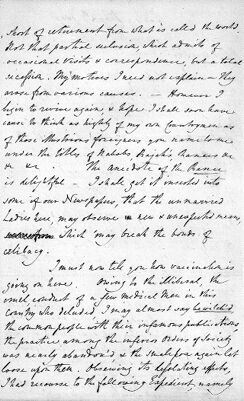 short of retirement from what is called the world.
Not that partial seclusion, which admits of
occasional visits & correspondence, but a total
secession. My motives I need not explain — They
arose from various causes. — However I
begin to revive again & hope I shall soon have
cause to think as highly of my own Countrymen as
of those illustrious foreigners you name to me
under the titles of Nabobs Rajah's
&c &c. The anecdote of the
is delightful — I shall get it inserted into
some of our Newspapers, that the unmarried
Ladies here, may observe new & unexpected means,
which may break the bonds of
celibacy.
I must now tell you how vaccination is
going on here. Owing to the illiberal, the
cruel conduct of a few medical Men in this
country who deluded, I may almost say bewitch'd
the common people with their infamous publications
the practice among the inferior Orders of Society
was nearly abandon'd & the Smallpox again let
loose upon them. Observing its desolating effects,
I had recourse to the following Expedient, namely